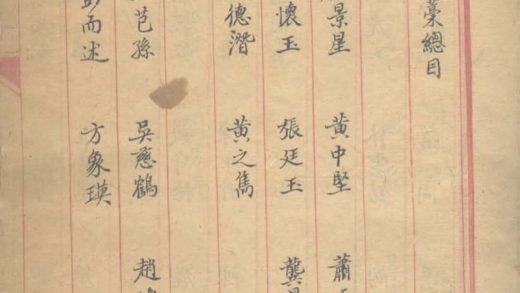 稾總目
景星 黃中堅 蕭
懷玉 張廷玉 龔
德潛 黃之雋
芑孫 吳慈鶴 趙
而述 方象瑛